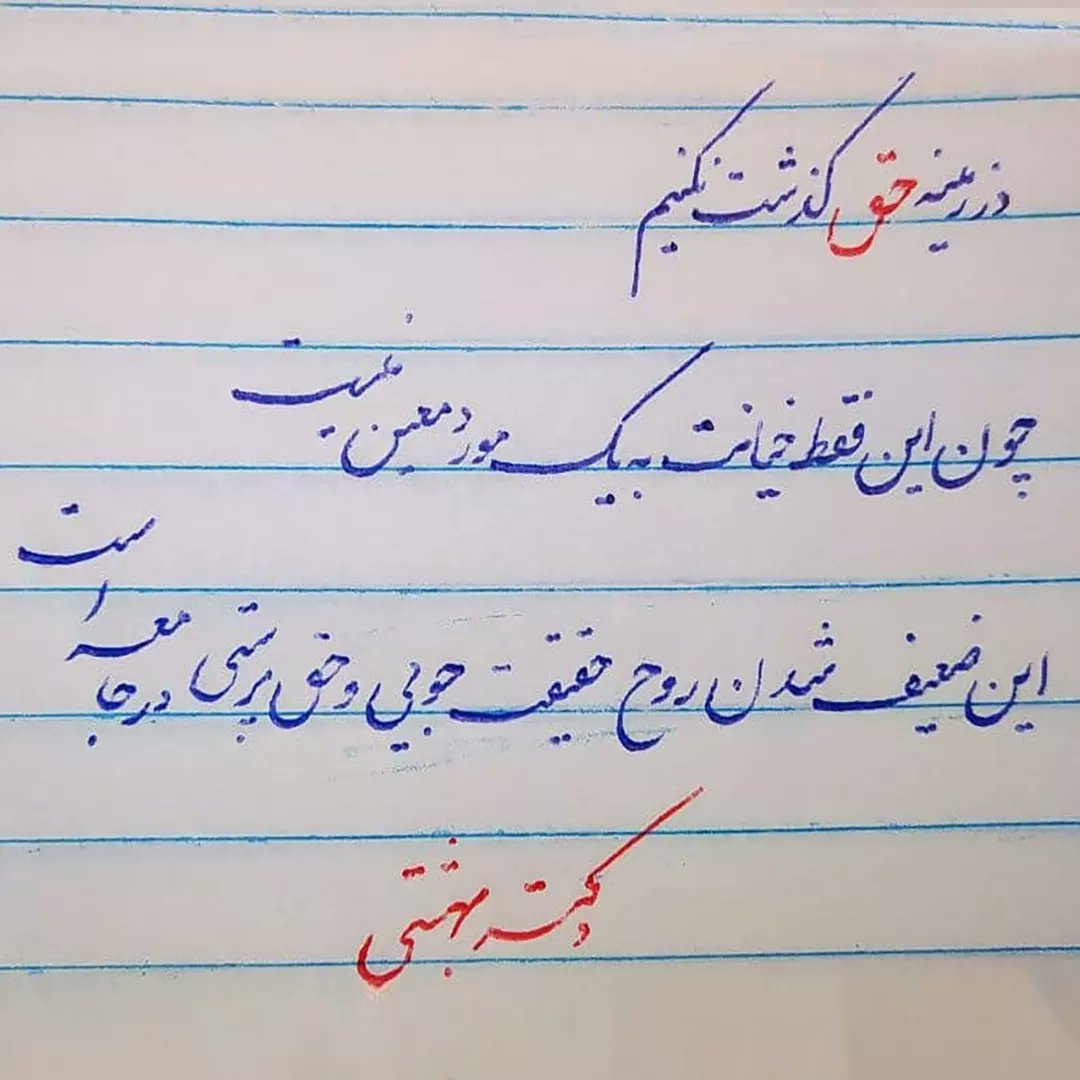 در زمینه حق گذشت نکنیم
چون این فقط خیانت به یک مورد معین نیست
این ضعیف شدن روح حقیقت جویی و حق پرستی در جامعه است
دکتر بهشتی